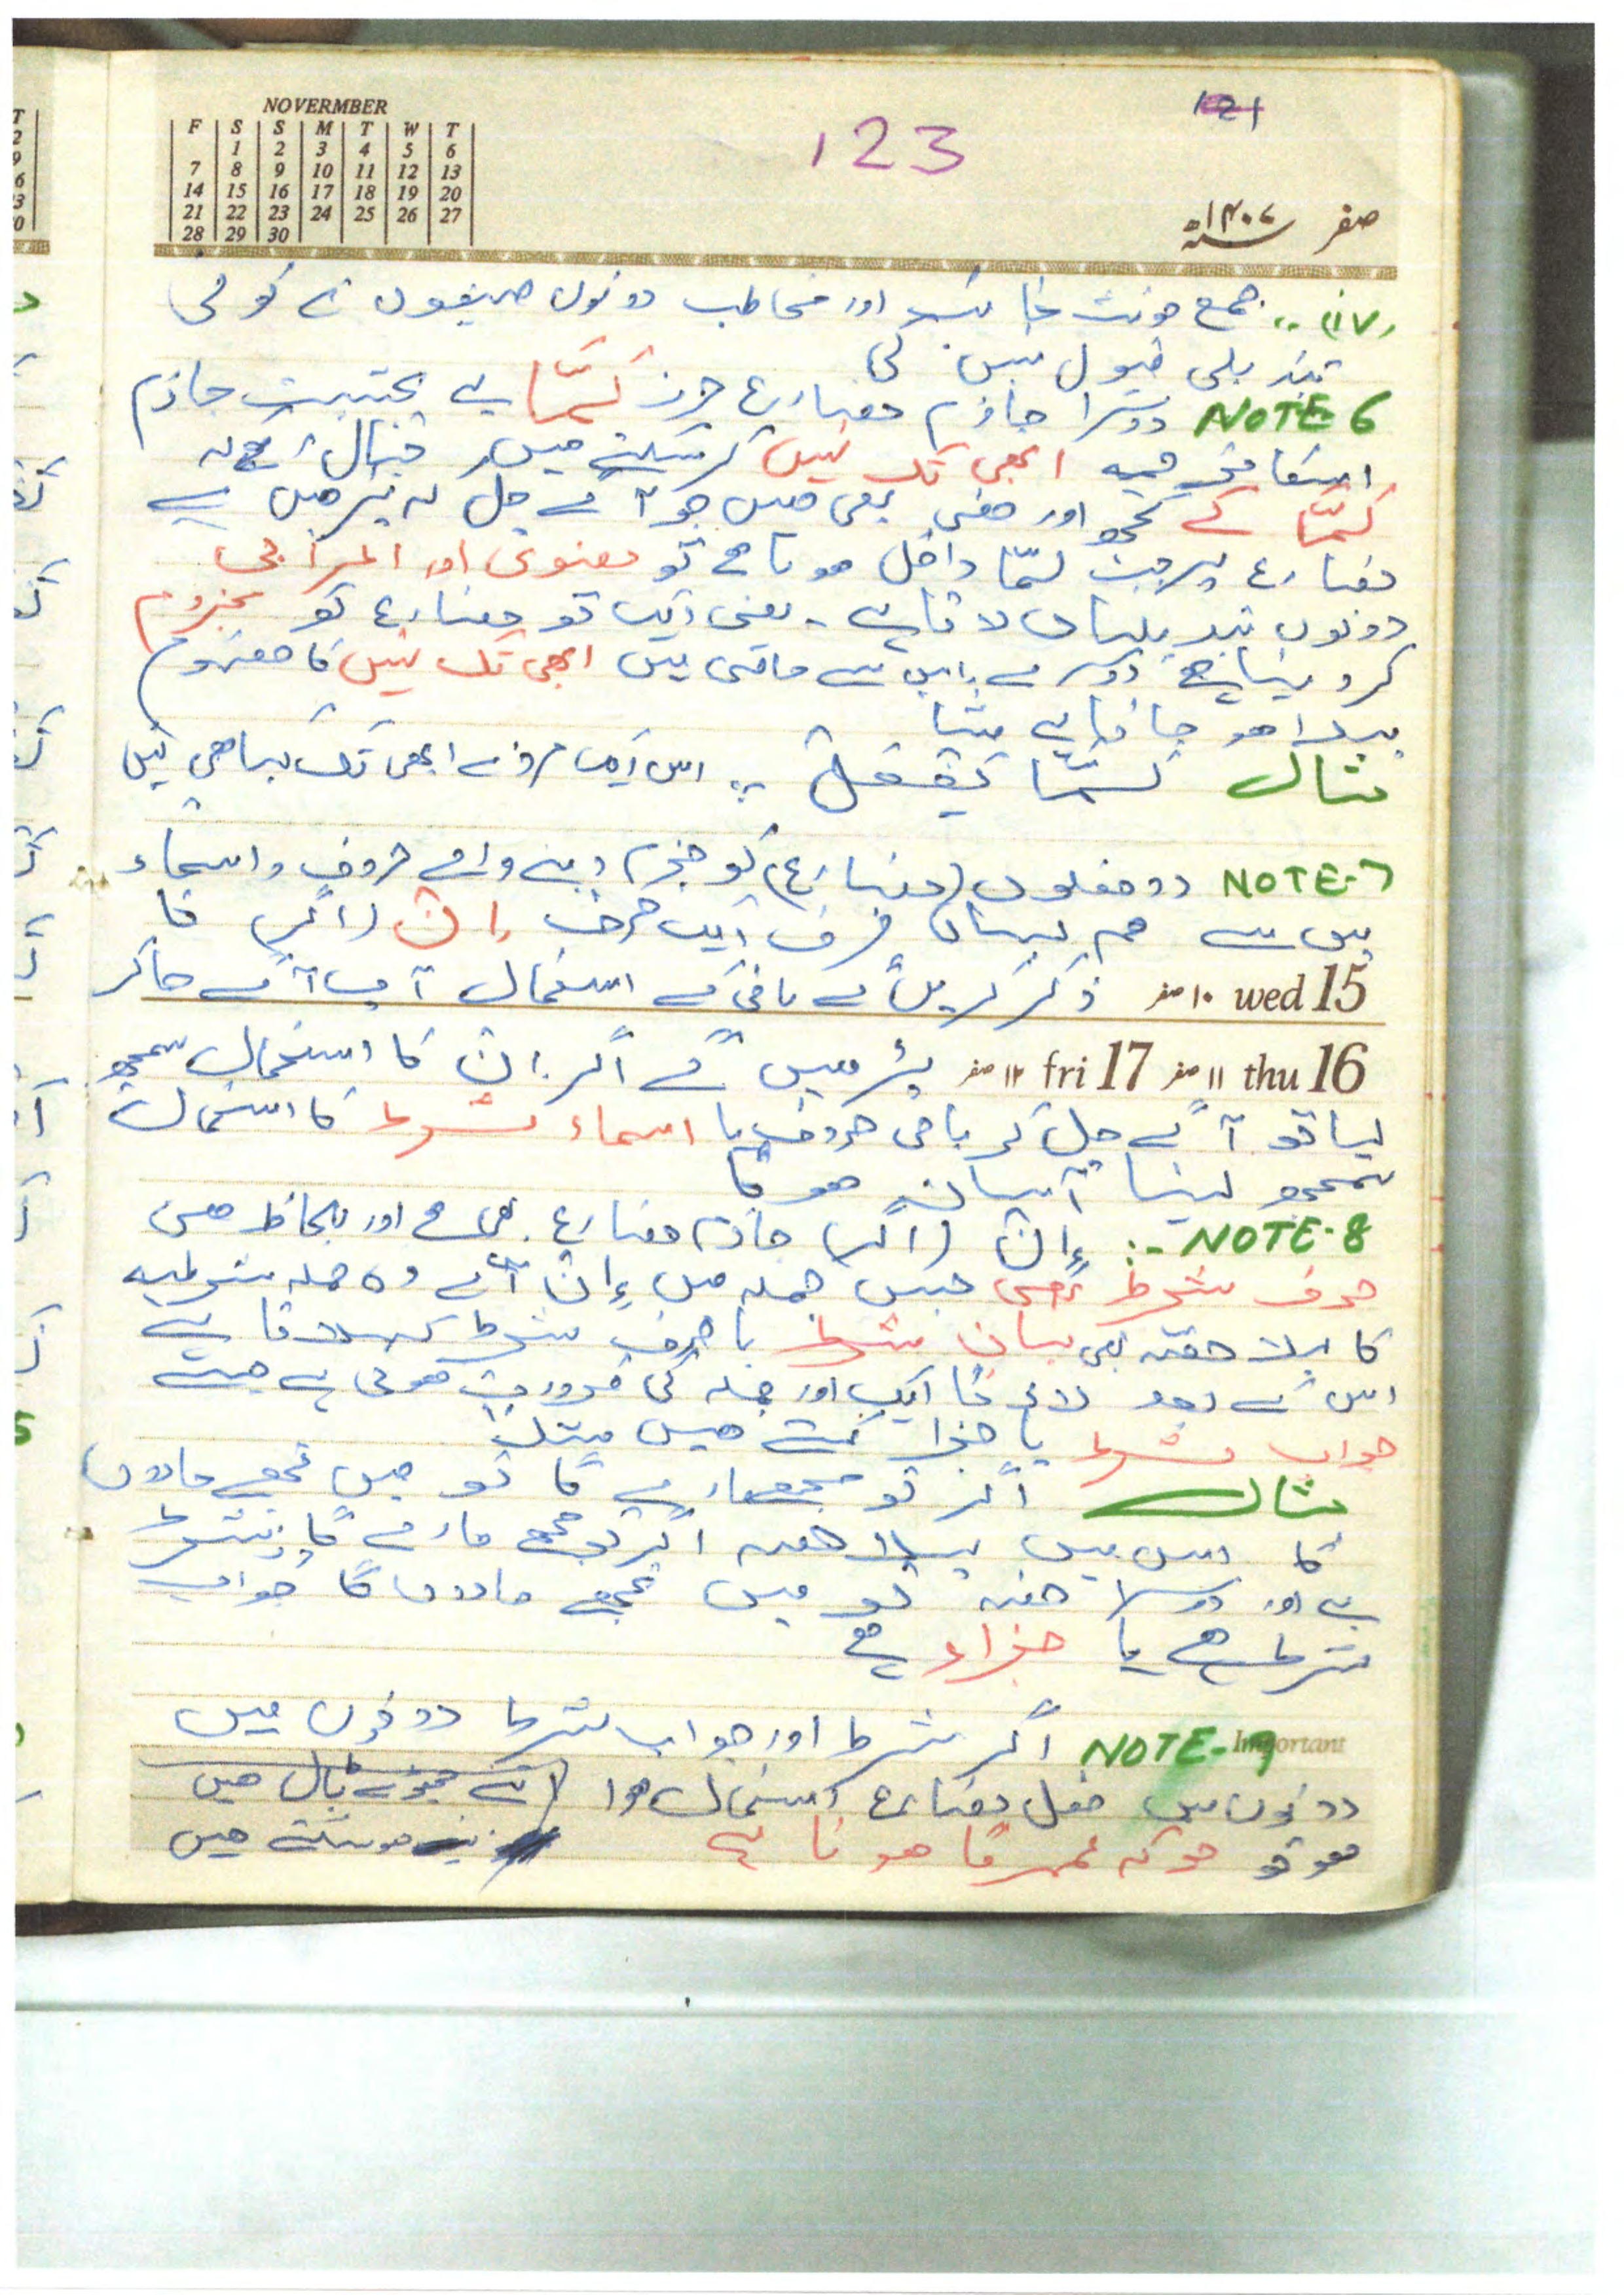 NOVERMBER
F S S M T W T
1 2 3 4 5 6
7 8 9 10 11 12 13
14 15 16 17 18 19 20
21 22 23 24 25 26 27
28 29 30
121
123
صفر ۱۴۰۷
جمع مونث غائب اور مخاطب دونوں صیغوں نے کوئی
تبدیلی قبول نہیں کی
NOTE 6 دوسرا جازم مضارع حرف لَمَّا ہے بحیثیت جازم
ابھی تک نہیں کر سکتے ہیں خیال رہے کہ
لَمَّا کے کچھ اور معنی بھی ہیں جو آگے چل کر پڑھیں گے
مضارع پر جب لمّا داخل ہوتا ہے تو معنوی اور اعرابی
دونوں تبدیلیاں لاتا ہے۔ یعنی ایک تو مضارع کو مجزوم
کر دیتا ہے دوسرے اس سے ماضی میں ابھی تک نہیں کا مفہوم
پیدا ہو جاتا ہے مثلا
مثال لَمَّا يَفْعَلْ :. اس ایک مرد نے ابھی تک کیا ہی نہیں
NOTE-7 دو فعلوں (مضارع) کو جزم دینے والے حروف و اسماء
میں سے ہم یہاں صرف ایک حرف اِنْ (اگر) کا
wed 15 ۱۰ صفر ذکر کریں گے باقی کے استعمال آپ آگے جا کر
thu 16 ۱۱ صفر fri 17 ۱۲ صفر پڑھیں گے اگر اِن کا استعمال سمجھ
لیا تو آگے چل کر باقی حروف یا اسماء شرط کا استعمال
سمجھ لینا آسان ہو گا
NOTE-8 :- اِنْ (اگر) جازم مضارع بھی ہے اور بلحاظ معنی
حرف شرط بھی جس جملہ میں اِنْ آئے وہ جملہ شرطیہ
کا پہلا حصہ بیان شرط یا حرف شرط کہلاتا ہے
اس کے بعد لازما ایک اور جملہ کی ضرورت ہوتی ہے جسے
جواب شرط یا جزا کہتے ہیں مثلا
مثال اگر تو مجھے مارے گا تو میں تجھے ماروں
گا اس میں پہلا حصہ اگر تو مجھے مارے گا شرط
ہے اور دوسرا حصہ تو میں تجھے ماروں گا جواب
شرط ہے یا جزاء ہے
Important
NOTE-9 اگر شرط اور جواب شرط دونوں میں
دونوں میں فعل مضارع استعمال ہوا
ہو تو جو کہ عموما ہوتا ہے